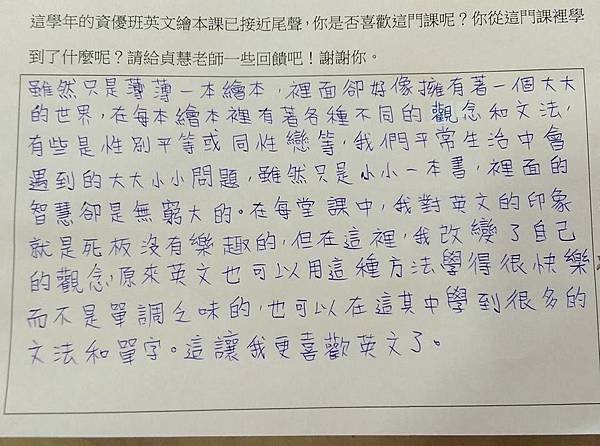 這學年的資優班英文繪本課已接近尾聲，你是否喜歡這門課呢？你從這門課裡學
到了什麼呢？請給貞慧老師一些回饋吧！謝謝你。
雖然只是薄薄一本繪本，裡面卻好像擁有著一個大大
的世界，在每本繪本裡有著各種不同的觀念和文法，
有些是性別平等或同性戀等，我們平常生活中會
遇到的大大小小問題，雖然只是小小一本書，裡面的
智慧卻是無窮大的。在每堂課中，我對英文的印象
就是死板沒有樂趣的，但在這裡，我改變了自己
的觀念，原來英文也可以用這種方法學得很快樂
而不是單調乏味的，也可以在這其中學到很多的
文法和單字。這讓我更喜歡英文了。